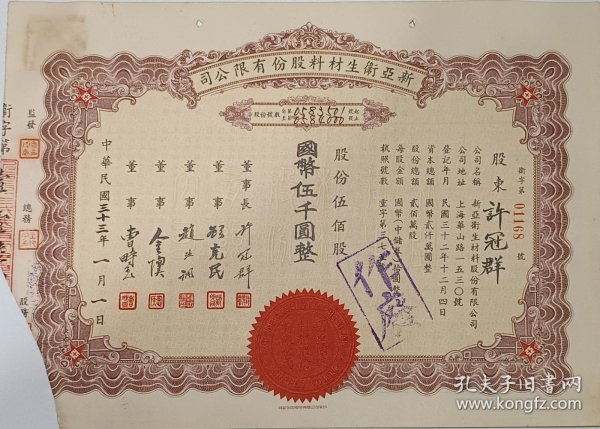 新亞衛生材料股份有限公司
股份號數
自第6583501號起
至第6584000號止
衛字第01168號
股東 許冠群
公司名稱 新亞衛生材料股份有限公司
公司地址 上海華山路一五三〇號
登記年月 民國三十二年十二月四日
資本總額 國幣貳仟萬圓整
股份總額 貳佰萬股
每股金額 國幣
執照號數
股份伍佰股
國幣伍千圓整
董事長 許冠群
董事
董事
董事
董事
中華民國三十三年一月一日
作廢
監發
總務
股務
衛字第
孔夫子旧书网
www.kongfz.com